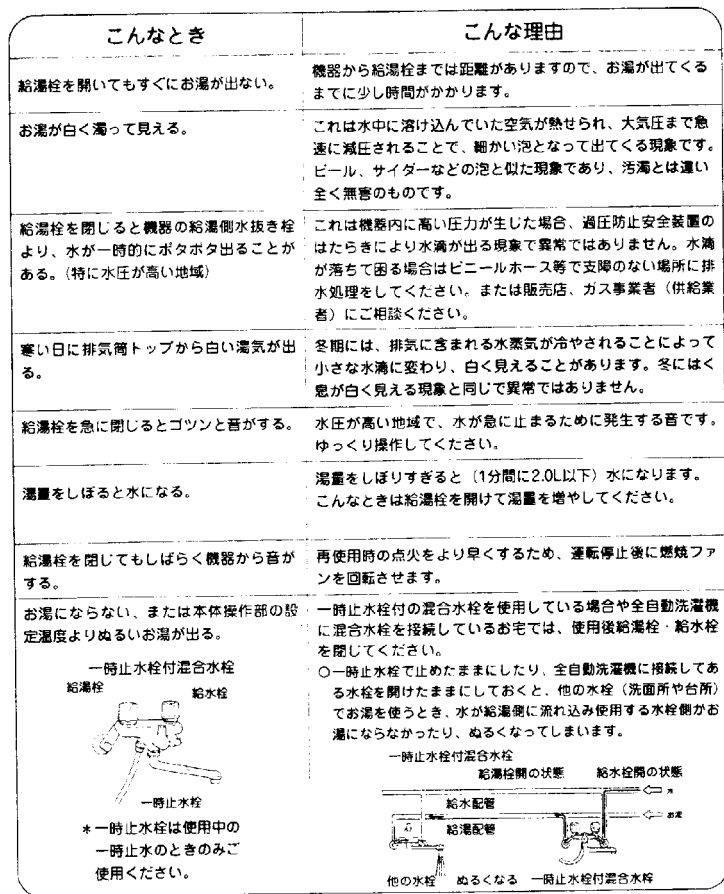 こんなとき
こんな理由
給湯栓を開いてもすぐにお湯が出ない。
機器から給湯栓までは距離がありますので、お湯が出てくる
までに少し時間がかかります。
お湯が白く濁って見える。
これは水中に溶け込んでいた空気が熱せられ、大気圧まで急
速に減圧されることで、細かい泡となって出てくる現象です。
ビール、サイダーなどの泡と似た現象であり、汚濁とは違い
全く無害のものです。
給湯栓を閉じると機器の給湯側水抜き栓
より、水が一時的にポタポタ出ることが
ある。(特に水圧が高い地域)
これは機器内に高い圧力が生じた場合、過圧防止安全装置の
はたらきにより水滴が出る現象で異常ではありません。水滴
が落ちて困る場合はビニールホース等で支障のない場所に排
水処理をしてください。または販売店、ガス事業者(供給業
者)にご相談ください。
寒い日に排気筒トップから白い湯気が出
る。
冬期には、排気に含まれる水蒸気が冷やされることによって
小さな水滴に変わり、白く見えることがあります。冬にはく
息が白く見える現象と同じで異常ではありません。
給湯栓を急に閉じるとゴツンと音がする。
水圧が高い地域で、水が急に止まるために発生する音です。
ゆっくり操作してください。
湯量をしぼると水になる。
湯量をしぼりすぎると(1分間に2.0L以下)水になります。
こんなときは給湯栓を開けて湯量を増やしてください。
給湯栓を閉じてもしばらく機器から音が
する。
再使用時の点火をより早くするため、運転停止後に燃焼ファ
ンを回転させます。
お湯にならない、または本体操作部の設
定温度よりぬるいお湯が出る。
一時止水栓付混合水栓
給湯栓
給水栓
一時止水栓
*一時止水栓は使用中の
一時止水のときのみご
使用ください。
一時止水栓付の混合水栓を使用している場合や全自動洗濯機
に混合水栓を接続しているお宅では、使用後給湯栓・給水栓
を閉じてください。
○一時止水栓で止めたままにしたり、全自動洗濯機に接続してあ
る水栓を開けたままにしておくと、他の水栓(洗面所や台所)
でお湯を使うとき、水が給湯側に流れ込み使用する水栓側がお
湯にならなかったり、ぬるくなってしまいます。
一時止水栓付混合水栓
給湯栓開の状態 給水栓開の状態
水
給水配管
お湯
給湯配管
他の水栓 ぬるくなる 一時止水栓付混合水栓